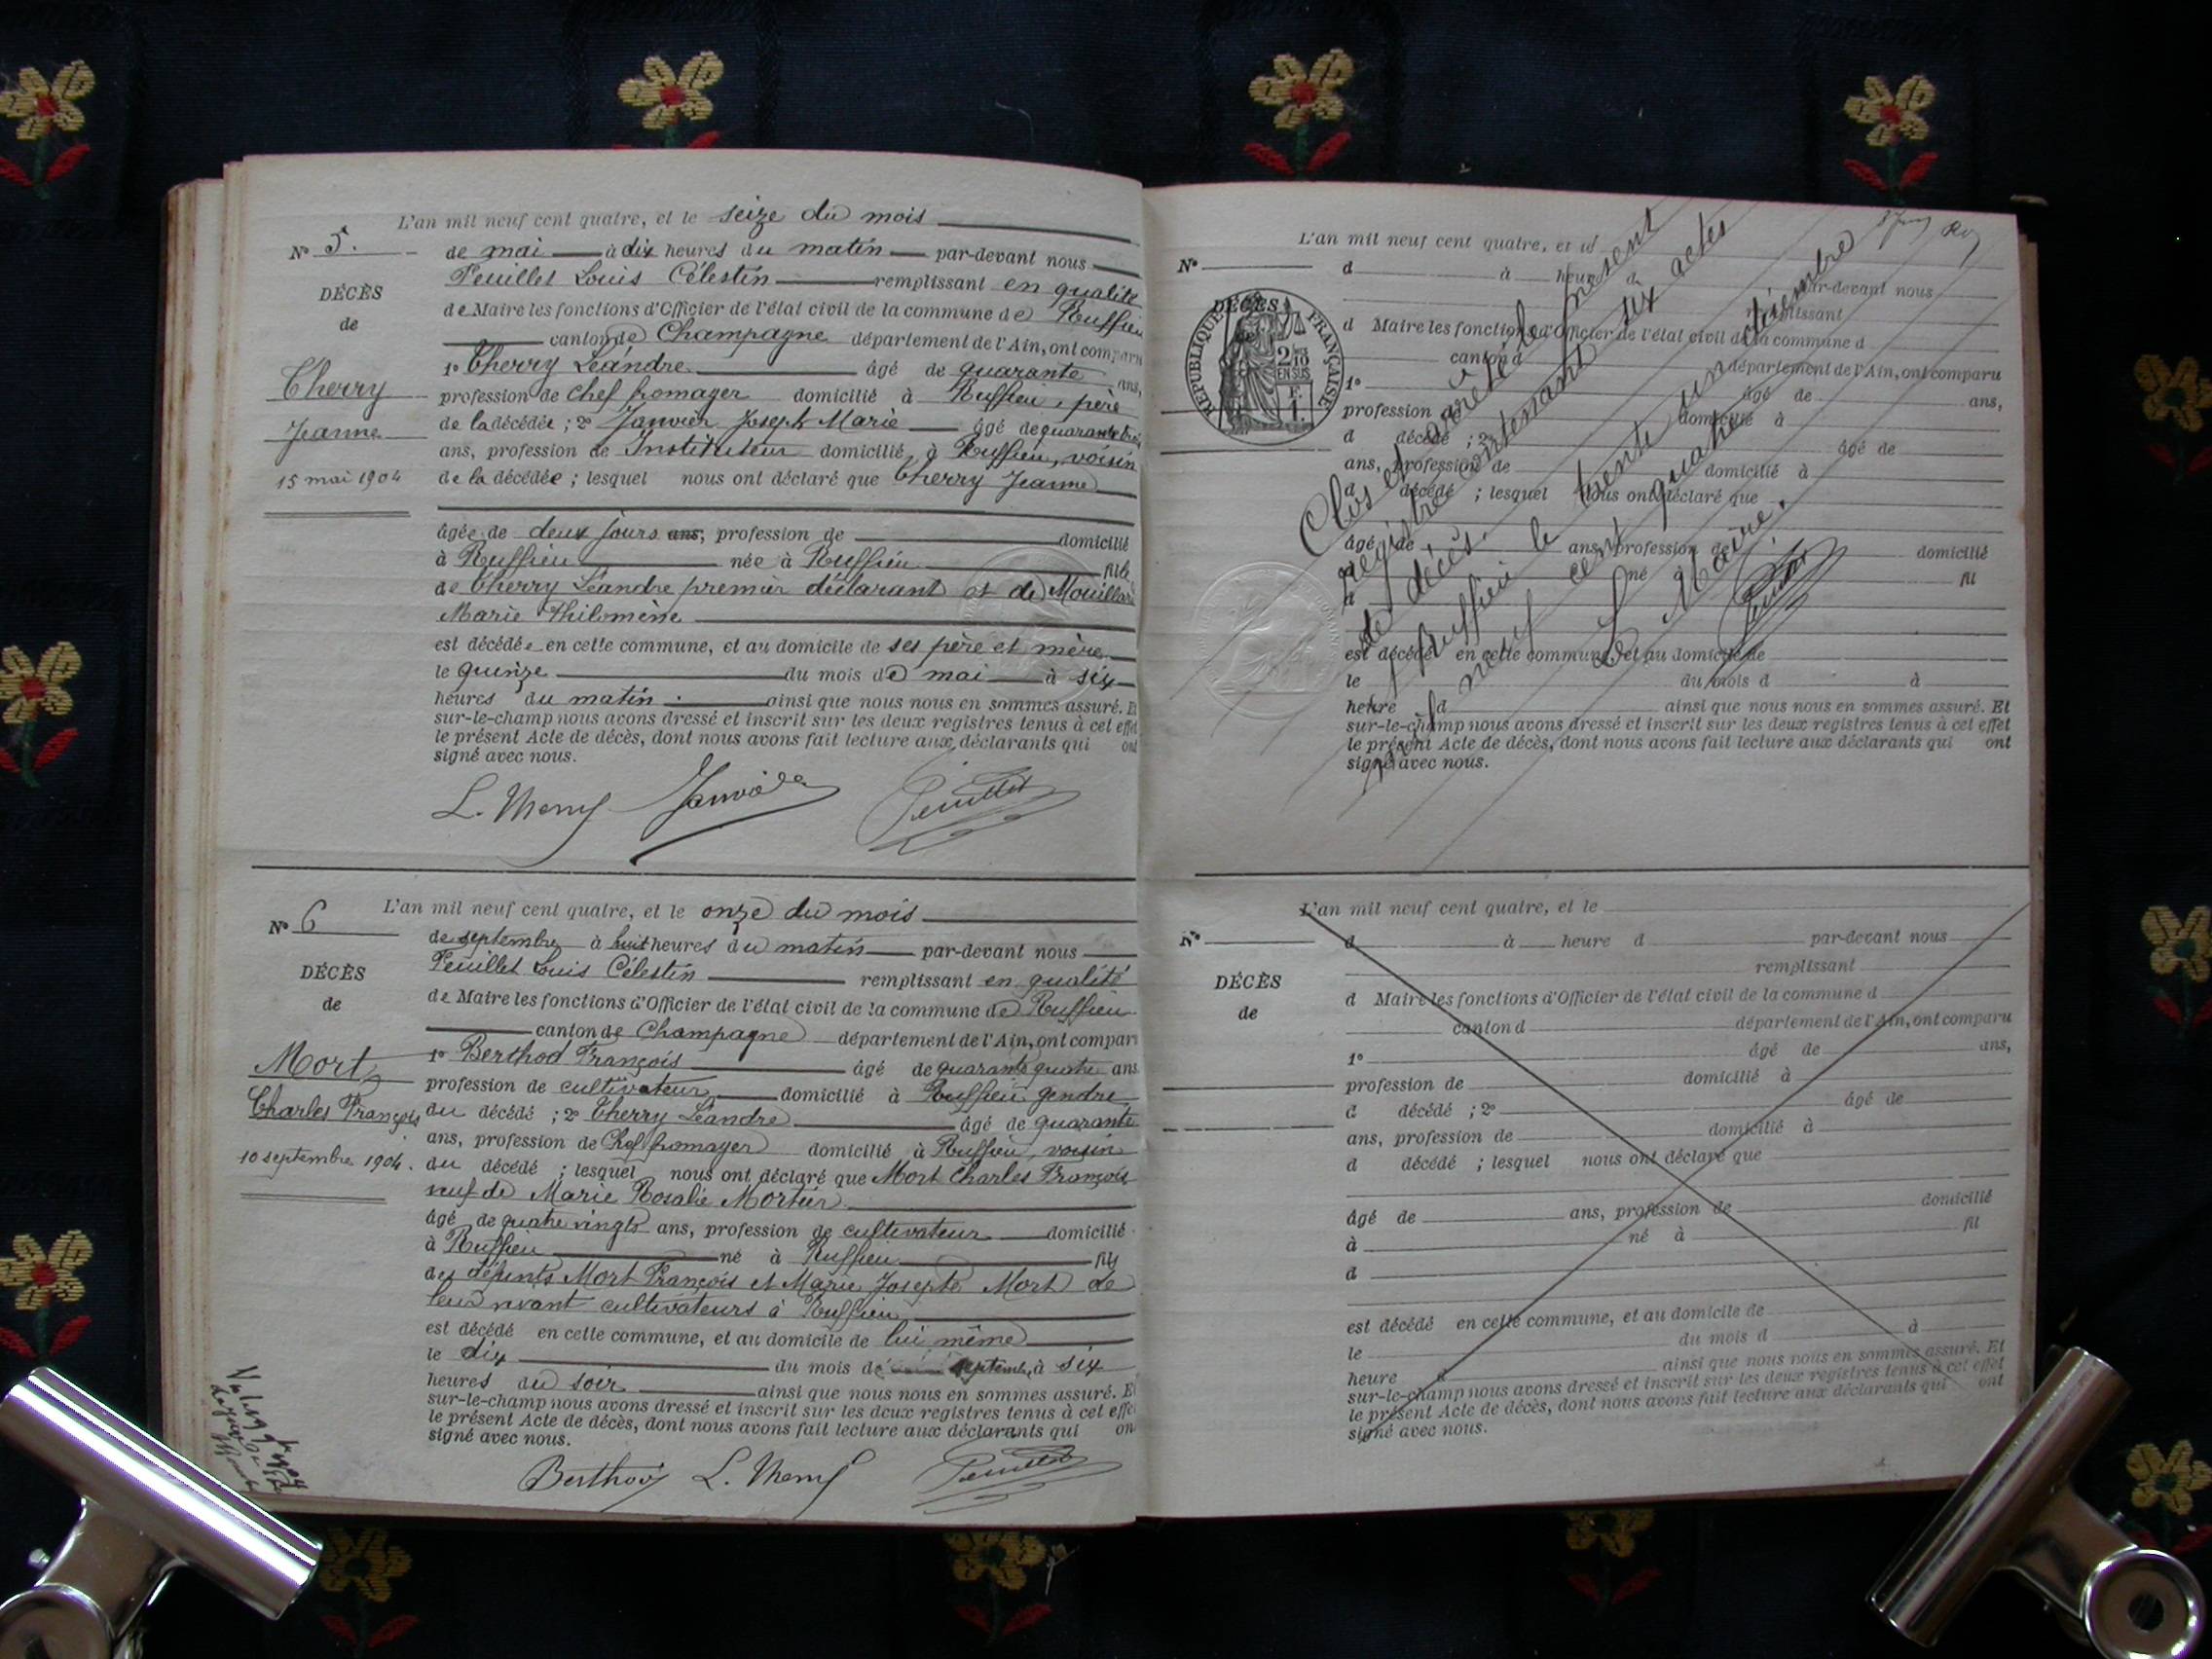 L'an mil neuf cent quatre, et le seize du mois
N° 5. de mai à dix heures du matin par-devant nous
Feuillet Louis Célestin remplissant en qualité
DÉCÈS
de
de Maire les fonctions d'Officier de l'état civil de la commune de Ruffieu
canton de Champagne département de l'Ain, ont comparu
1° Cherry Léandre âgé de quarante ans,
Cherry
profession de chef fromager domicilié à Ruffieu, père
Jeanne
de la décédée ; 2° Janvier Joseph Marie âgé de quarante trois
ans, profession de Instituteur domicilié à Ruffieu, voisin
15 mai 1904
de la décédée ; lesquel nous ont déclaré que Cherry Jeanne
âgée de deux jours ans, profession de domicilié
à Ruffieu née à Ruffieu fille
de Cherry Léandre premier déclarant et de Mouillard
Marie Philomène
est décédée en cette commune, et au domicile de ses père et mère
le quinze du mois de mai à six
heures du matin ainsi que nous nous en sommes assuré. Et
sur-le-champ nous avons dressé et inscrit sur les deux registres tenus à cet effet
le présent Acte de décès, dont nous avons fait lecture aux déclarants qui ont
signé avec nous.
Janvier Feuillet
L'an mil neuf cent quatre, et le onze du mois
N° 6
de septembre à huit heures du matin par-devant nous
Feuillet Louis Célestin remplissant en qualité
DÉCÈS
de
de Maire les fonctions d'Officier de l'état civil de la commune de Ruffieu
canton de Champagne département de l'Ain, ont compar
1° Berthod François âgé de quarante quatre ans
Mort
profession de cultivateur domicilié à Ruffieu gendre
Charles François
du décédé ; 2° Cherry Léandre âgé de quarante
ans, profession de Chef fromager domicilié à Ruffieu, voisin
10 septembre 1904.
du décédé ; lesquel nous ont déclaré que Mort Charles François
veuf de Marie Rosalie Mortier
âgé de quatre vingts ans, profession de cultivateur domicilié
à Ruffieu né à Ruffieu fils
des défunts Mort François et Marie Josepte Mort de
leur vivant cultivateurs à Ruffieu
est décédé en cette commune, et au domicile de lui même
le dix du mois de septembre à six
heures du soir ainsi que nous nous en sommes assuré. Et
sur-le-champ nous avons dressé et inscrit sur les deux registres tenus à cet effe
le présent Acte de décès, dont nous avons fait lecture aux déclarants qui on
signé avec nous.
Berthod Feuillet
L'an mil neuf cent quatre, et le
N° d à heure d par-devant nous
remplissant
DÉCÈS
RÉPUBLIQUE FRANÇAISE
2/10 EN SUS
d Maire les fonctions d'Officier de l'état civil de la commune d
canton d département de l'Ain, ont comparu
1° âgé de ans,
profession de domicilié à
d décédé ; 2° âgé de
ans, profession de domicilié à
d décédé ; lesquel nous ont déclaré que
âgé de ans, profession de domicilié
à né à fil
d
est décédé en cette commune, et au domicile de
le du mois d à
heure d ainsi que nous nous en sommes assuré. Et
sur-le-champ nous avons dressé et inscrit sur les deux registres tenus à cet effet
le présent Acte de décès, dont nous avons fait lecture aux déclarants qui ont
signé avec nous.
Clos et arrêté le présent
registre contenant six actes
de décès.
à Ruffieu le trente un décembre
mil neuf cent quatre
Le Maire,
Feuillet
L'an mil neuf cent quatre, et le
N° d à heure d par-devant nous
remplissant
DÉCÈS
de
d Maire les fonctions d'Officier de l'état civil de la commune d
canton d département de l'Ain, ont comparu
1° âgé de ans,
profession de domicilié à
d décédé ; 2° âgé de
ans, profession de domicilié à
d décédé ; lesquel nous ont déclaré que
âgé de ans, profession de domicilié
à né à fil
d
est décédé en cette commune, et au domicile de
le du mois d à
heure d ainsi que nous nous en sommes assuré. Et
sur-le-champ nous avons dressé et inscrit sur les deux registres tenus à cet effet
le présent Acte de décès, dont nous avons fait lecture aux déclarants qui ont
signé avec nous.